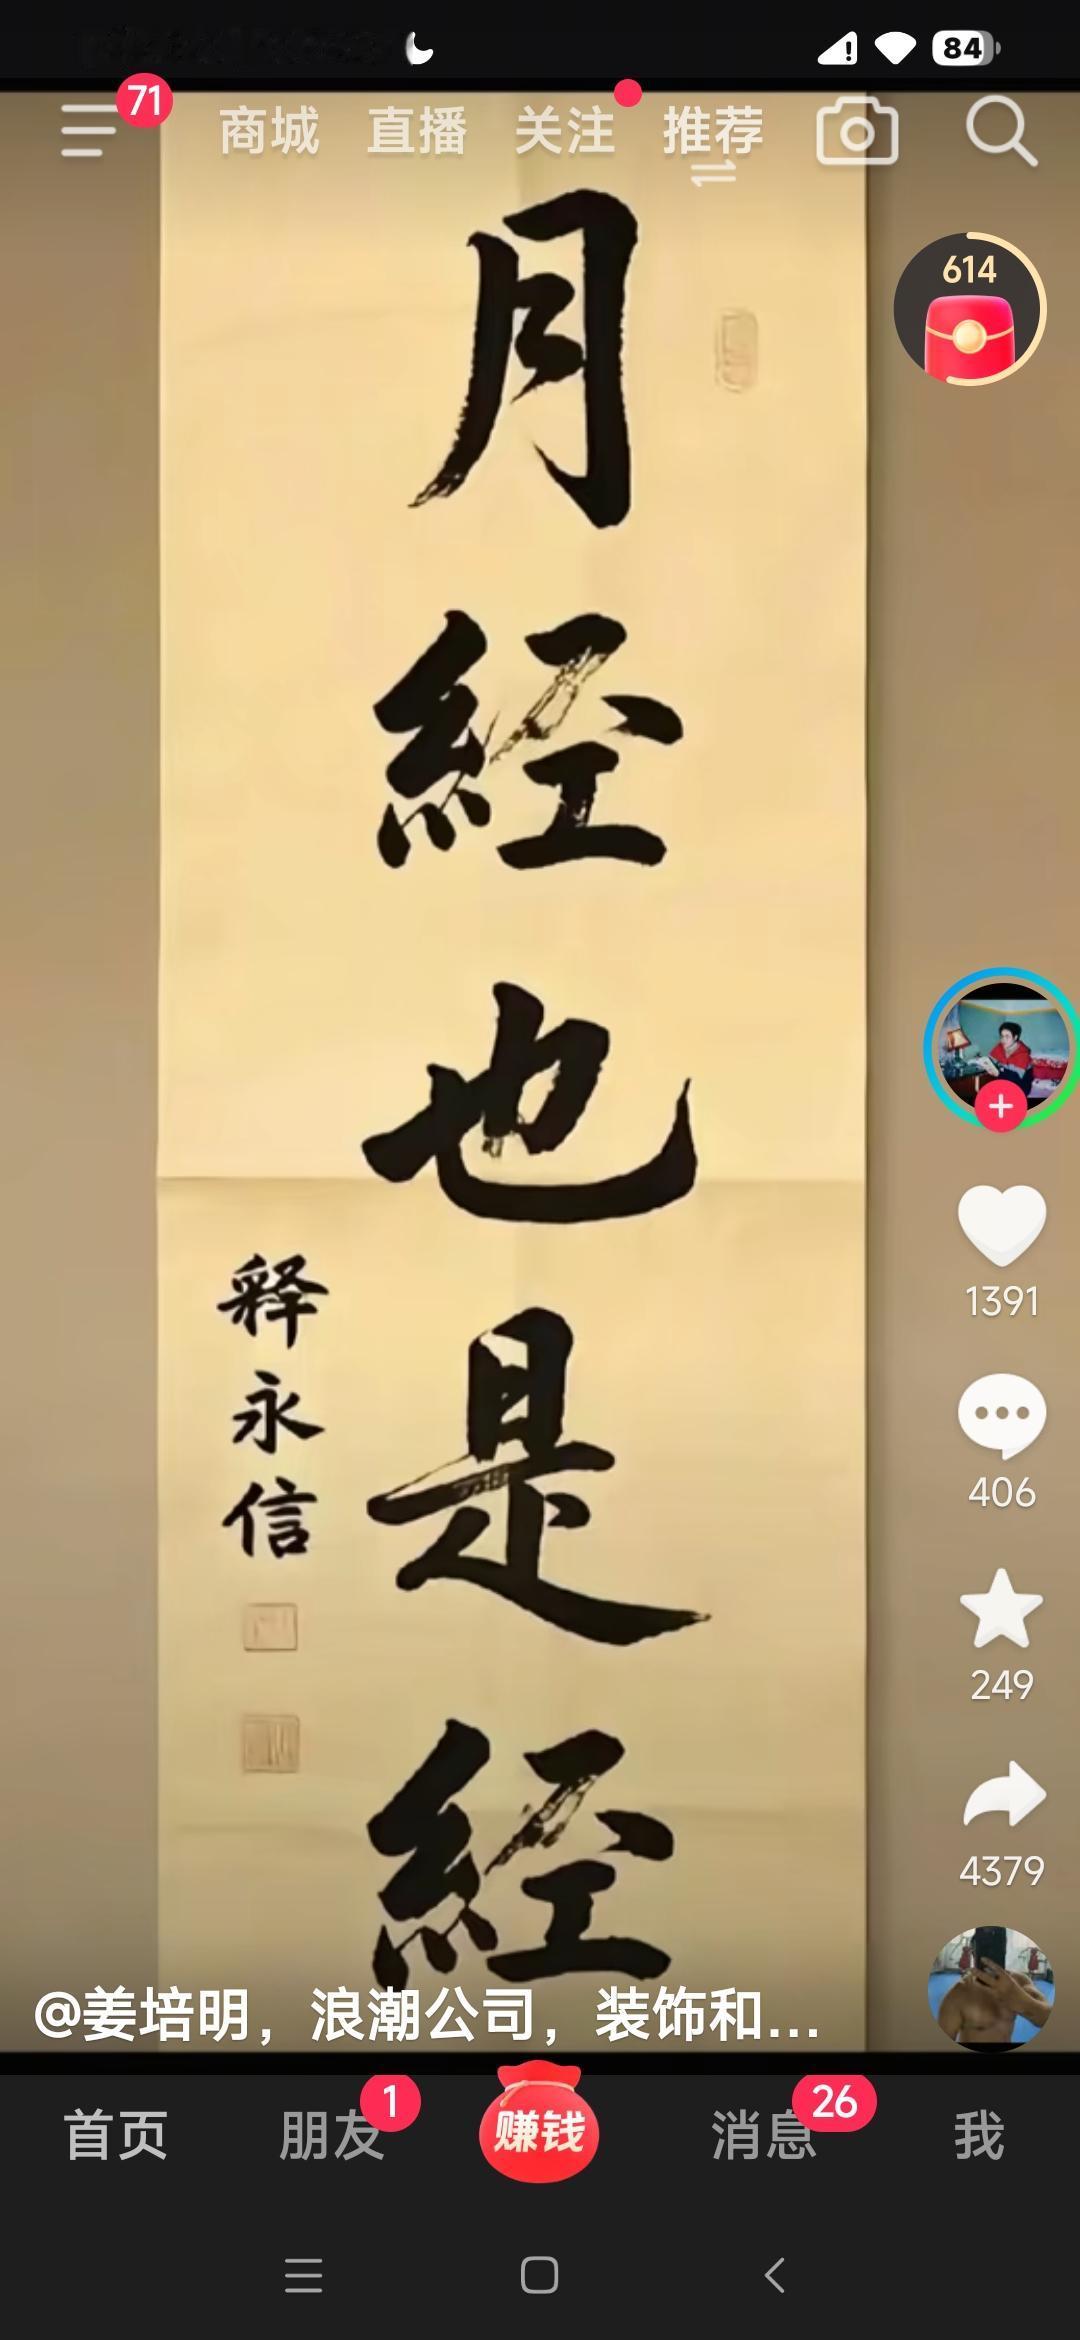 84
71
商城 直播 关注 推荐
614
月
經
也
是
經
释
永
信
1391
406
249
4379
@姜培明，浪潮公司，装饰和...
首页 朋友 1 赚钱 消息 26 我